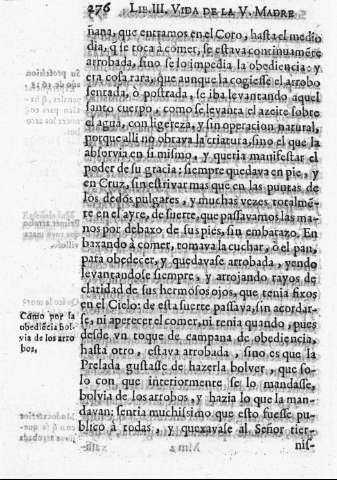 276 LIB. III. VIDA DE LA V. MADRE
ñana, que entramos en el Coro, hasta el medio
dia, q̃ se toca à comer, se estava continuamẽte
arrobada, sino se lo impedia la obediencia: y
era cosa rara, que aunque la cogiesse el arrobo
sentada, ò postrada, se iba levantando aquel
santo cuerpo, como se levanta el azeite sobre
el agua, con ligereza, y sin operacion natural,
porque alli no obrava la criatura, sino el que la
absorvia en si mismo, y queria manifestar el
poder de su gracia: siempre quedava en pie, y
en Cruz, sin estrivar mas que en las puntas de
los dedos pulgares, y muchas vezes totalmẽ-
te en el ayre, de suerte, que passavamos las ma-
nos por debaxo de sus pies, sin embarazo. En
baxando à comer, tomava la cuchar, ò el pan,
para obedecer, y quedavase arrobada, yendo
levantandose siempre, y arrojando rayos de
claridad de sus hermosos ojos, que tenia fixos
en el Cielo: de esta suerte passava, sin acordar-
se, ni apetecer el comer, ni tenia quando, pues
Como por la
obediẽcia bol-
via de los arro
bos,
desde vn toque de campana de obediencia,
hasta otro, estava arrobada, sino es que la
Prelada gustasse de hazerla bolver, que so-
lo con que interiormente se lo mandasse,
bolvia de los arrobos, y hazia lo que la man-
davan: sentia muchissimo que esto fuesse pu-
blico à todas, y quexavase al Señor tier-
nis-